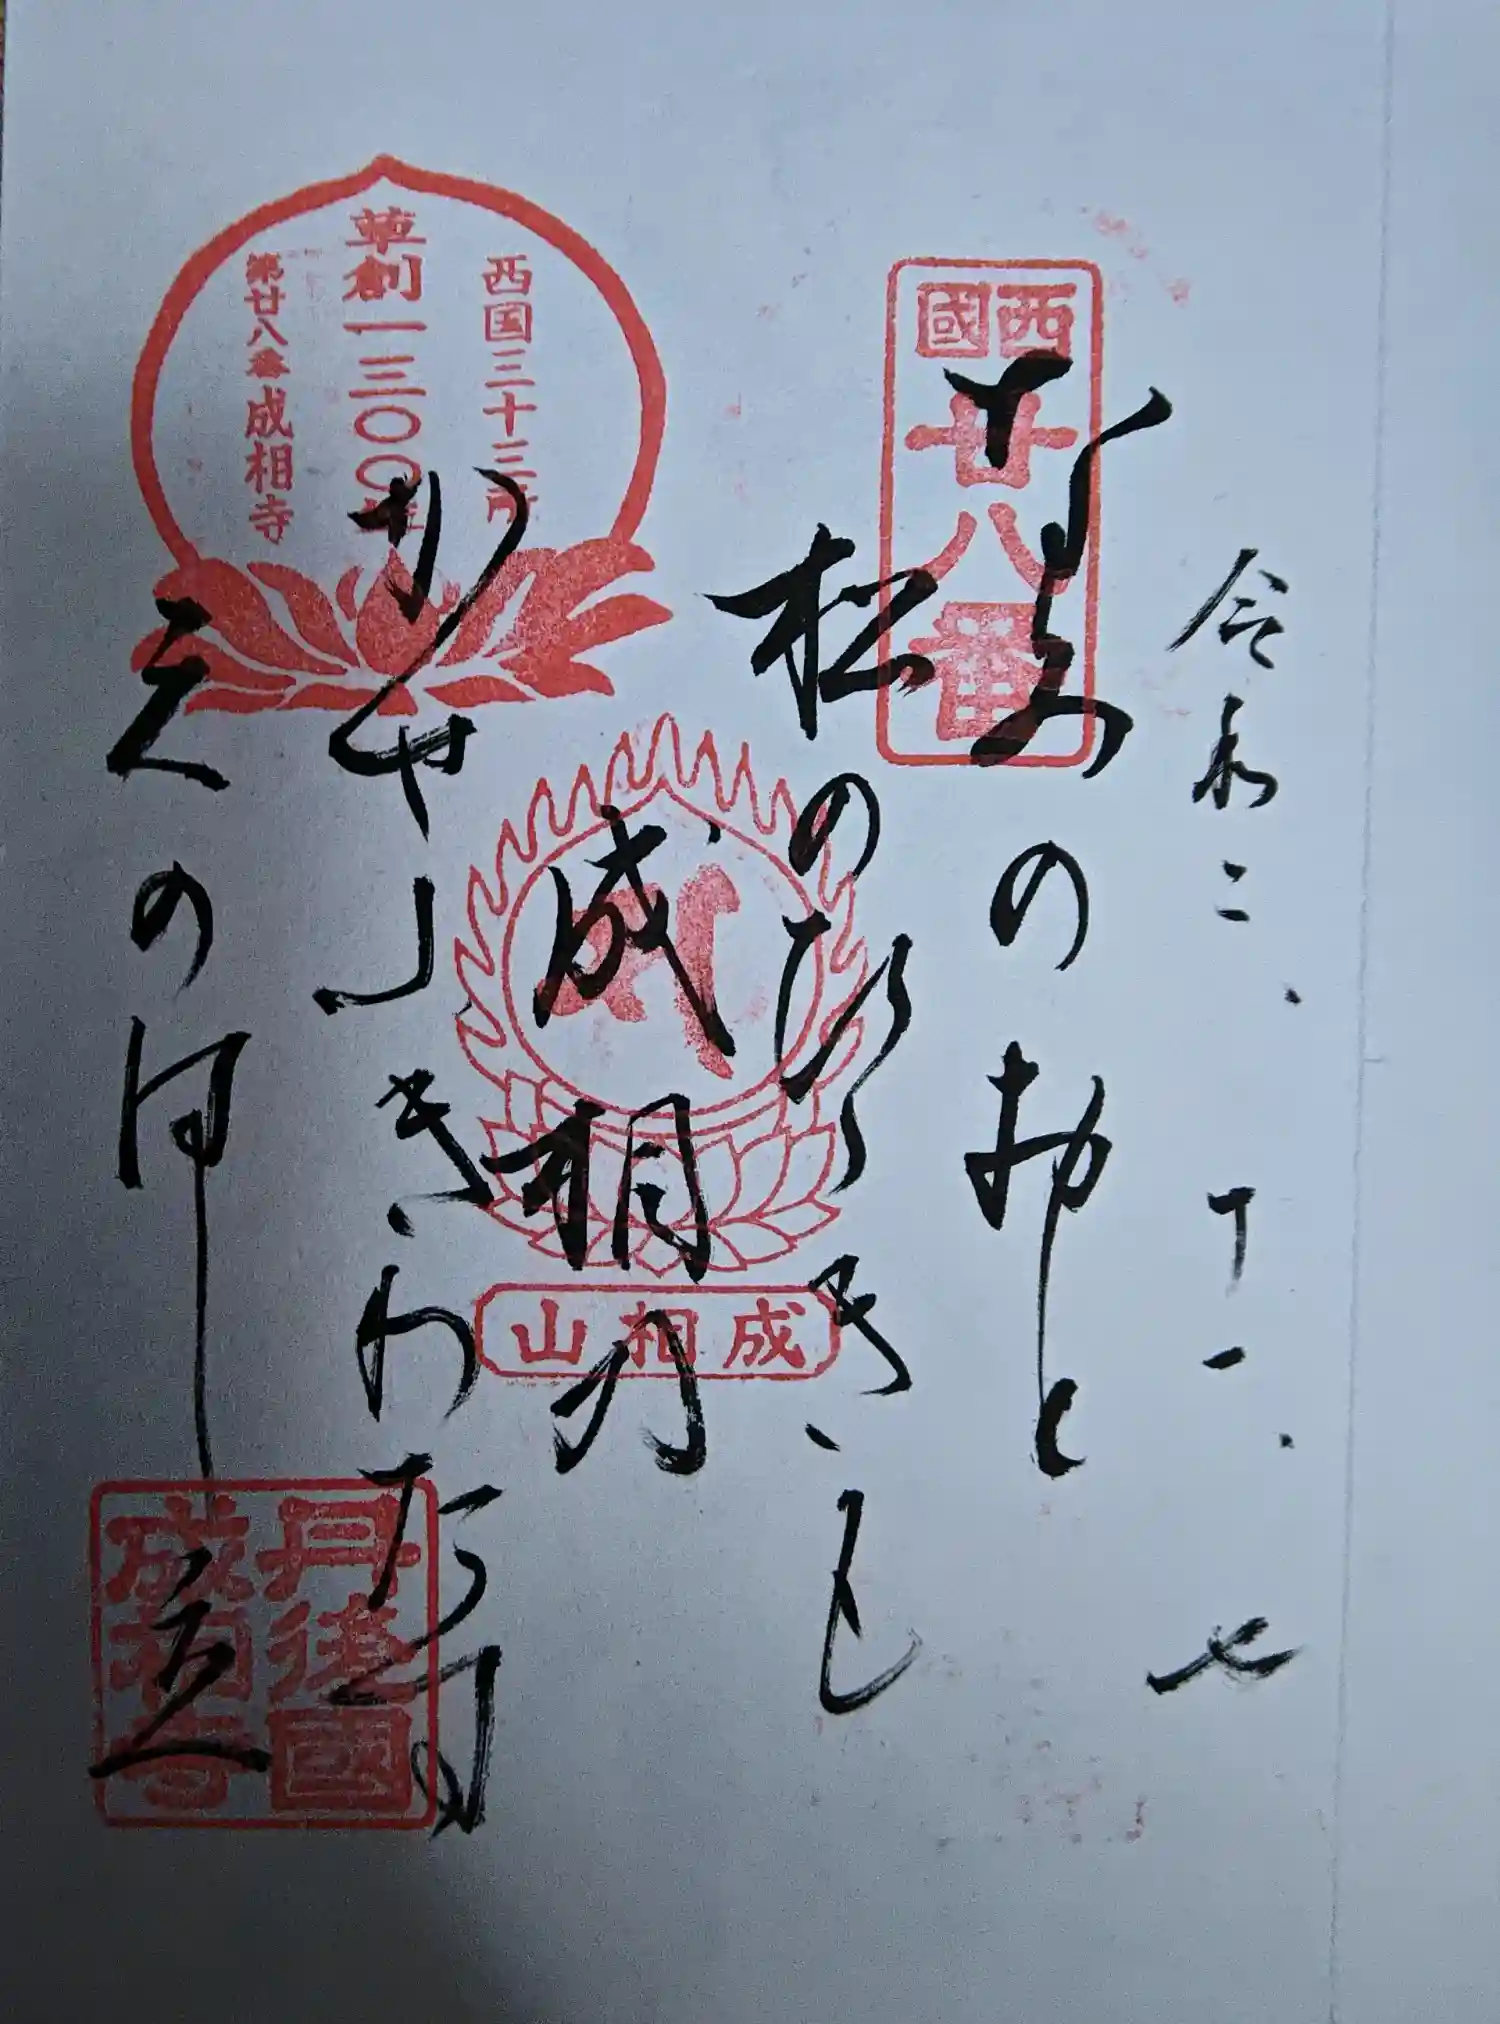 令和二、十一、七
西國
廿八番
なみのおと
松のひゞきも
成相の
かぜふきわたす
天のはし立
西国三十三所
草創一三〇〇年
第廿八番成相寺
成相山
丹後國
成相寺